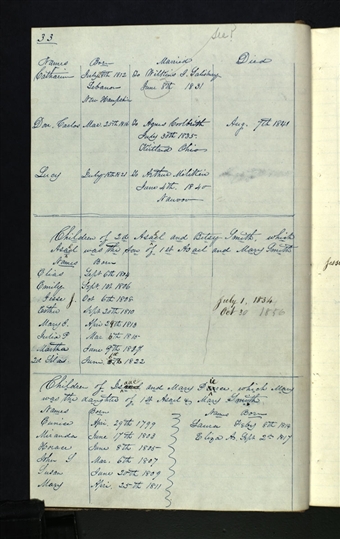 33
See P
Names Born Married Died
Catharin July 8th 1812 To Wilkins J. Salisbury
Lebanon June 8th 1831
New Hampshire
Don. Carlos Mar. 25th 1816 To Agnes Coolbrith Aug. 7th 1841
July 30th 1835
Kirtland Ohio
Lucy July 18th 1821 To Arthur Miliken
June 4th 1840
Nauvoo
Children of 2d Asael and Betsey Smith, which
Asael was the son of 1st Asael and Mary Smith
Names Born
Elias Sept 6th 1804
Emily Sept 1st 1806
Jesse J. Oct 6th 1808 July 1, 1834
Esther Sept 20th 1810 Oct 30 1856
Mary J. Apr. 29th 1813
Julia P. Mar 6th 1815
Martha June 9th 1817
2d Silas June 1822
Children of Isaac and Mary Pierce, which Mary
was the daughter of 1st Asael & Mary Smith
Names Born Names Born
Eunice Apr. 29th 1799 Laura Feby 8th 1814
Miranda June 17th 1803 Eliza A. Sept 2nd 1817
Horace June 8th 1805
John S Mar. 6th 1807
Susan June 20th 1809
Mary Apr. 25th 1811